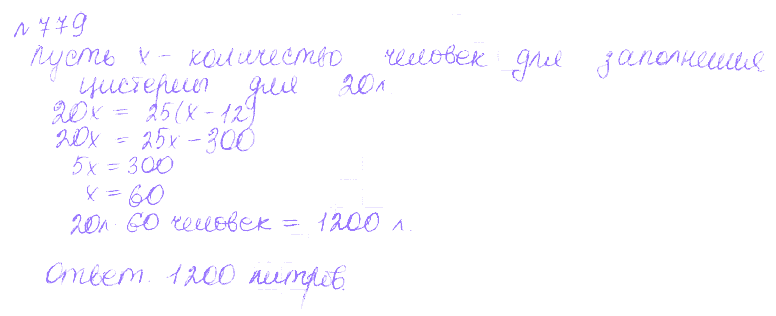 №779
Пусть x – количество человек для заполнения
цистерны для 20л
20x = 25(x-12)
20x = 25x-300
5x = 300
x = 60
20л 60 человек = 1200 л.
Ответ. 1200 литров.